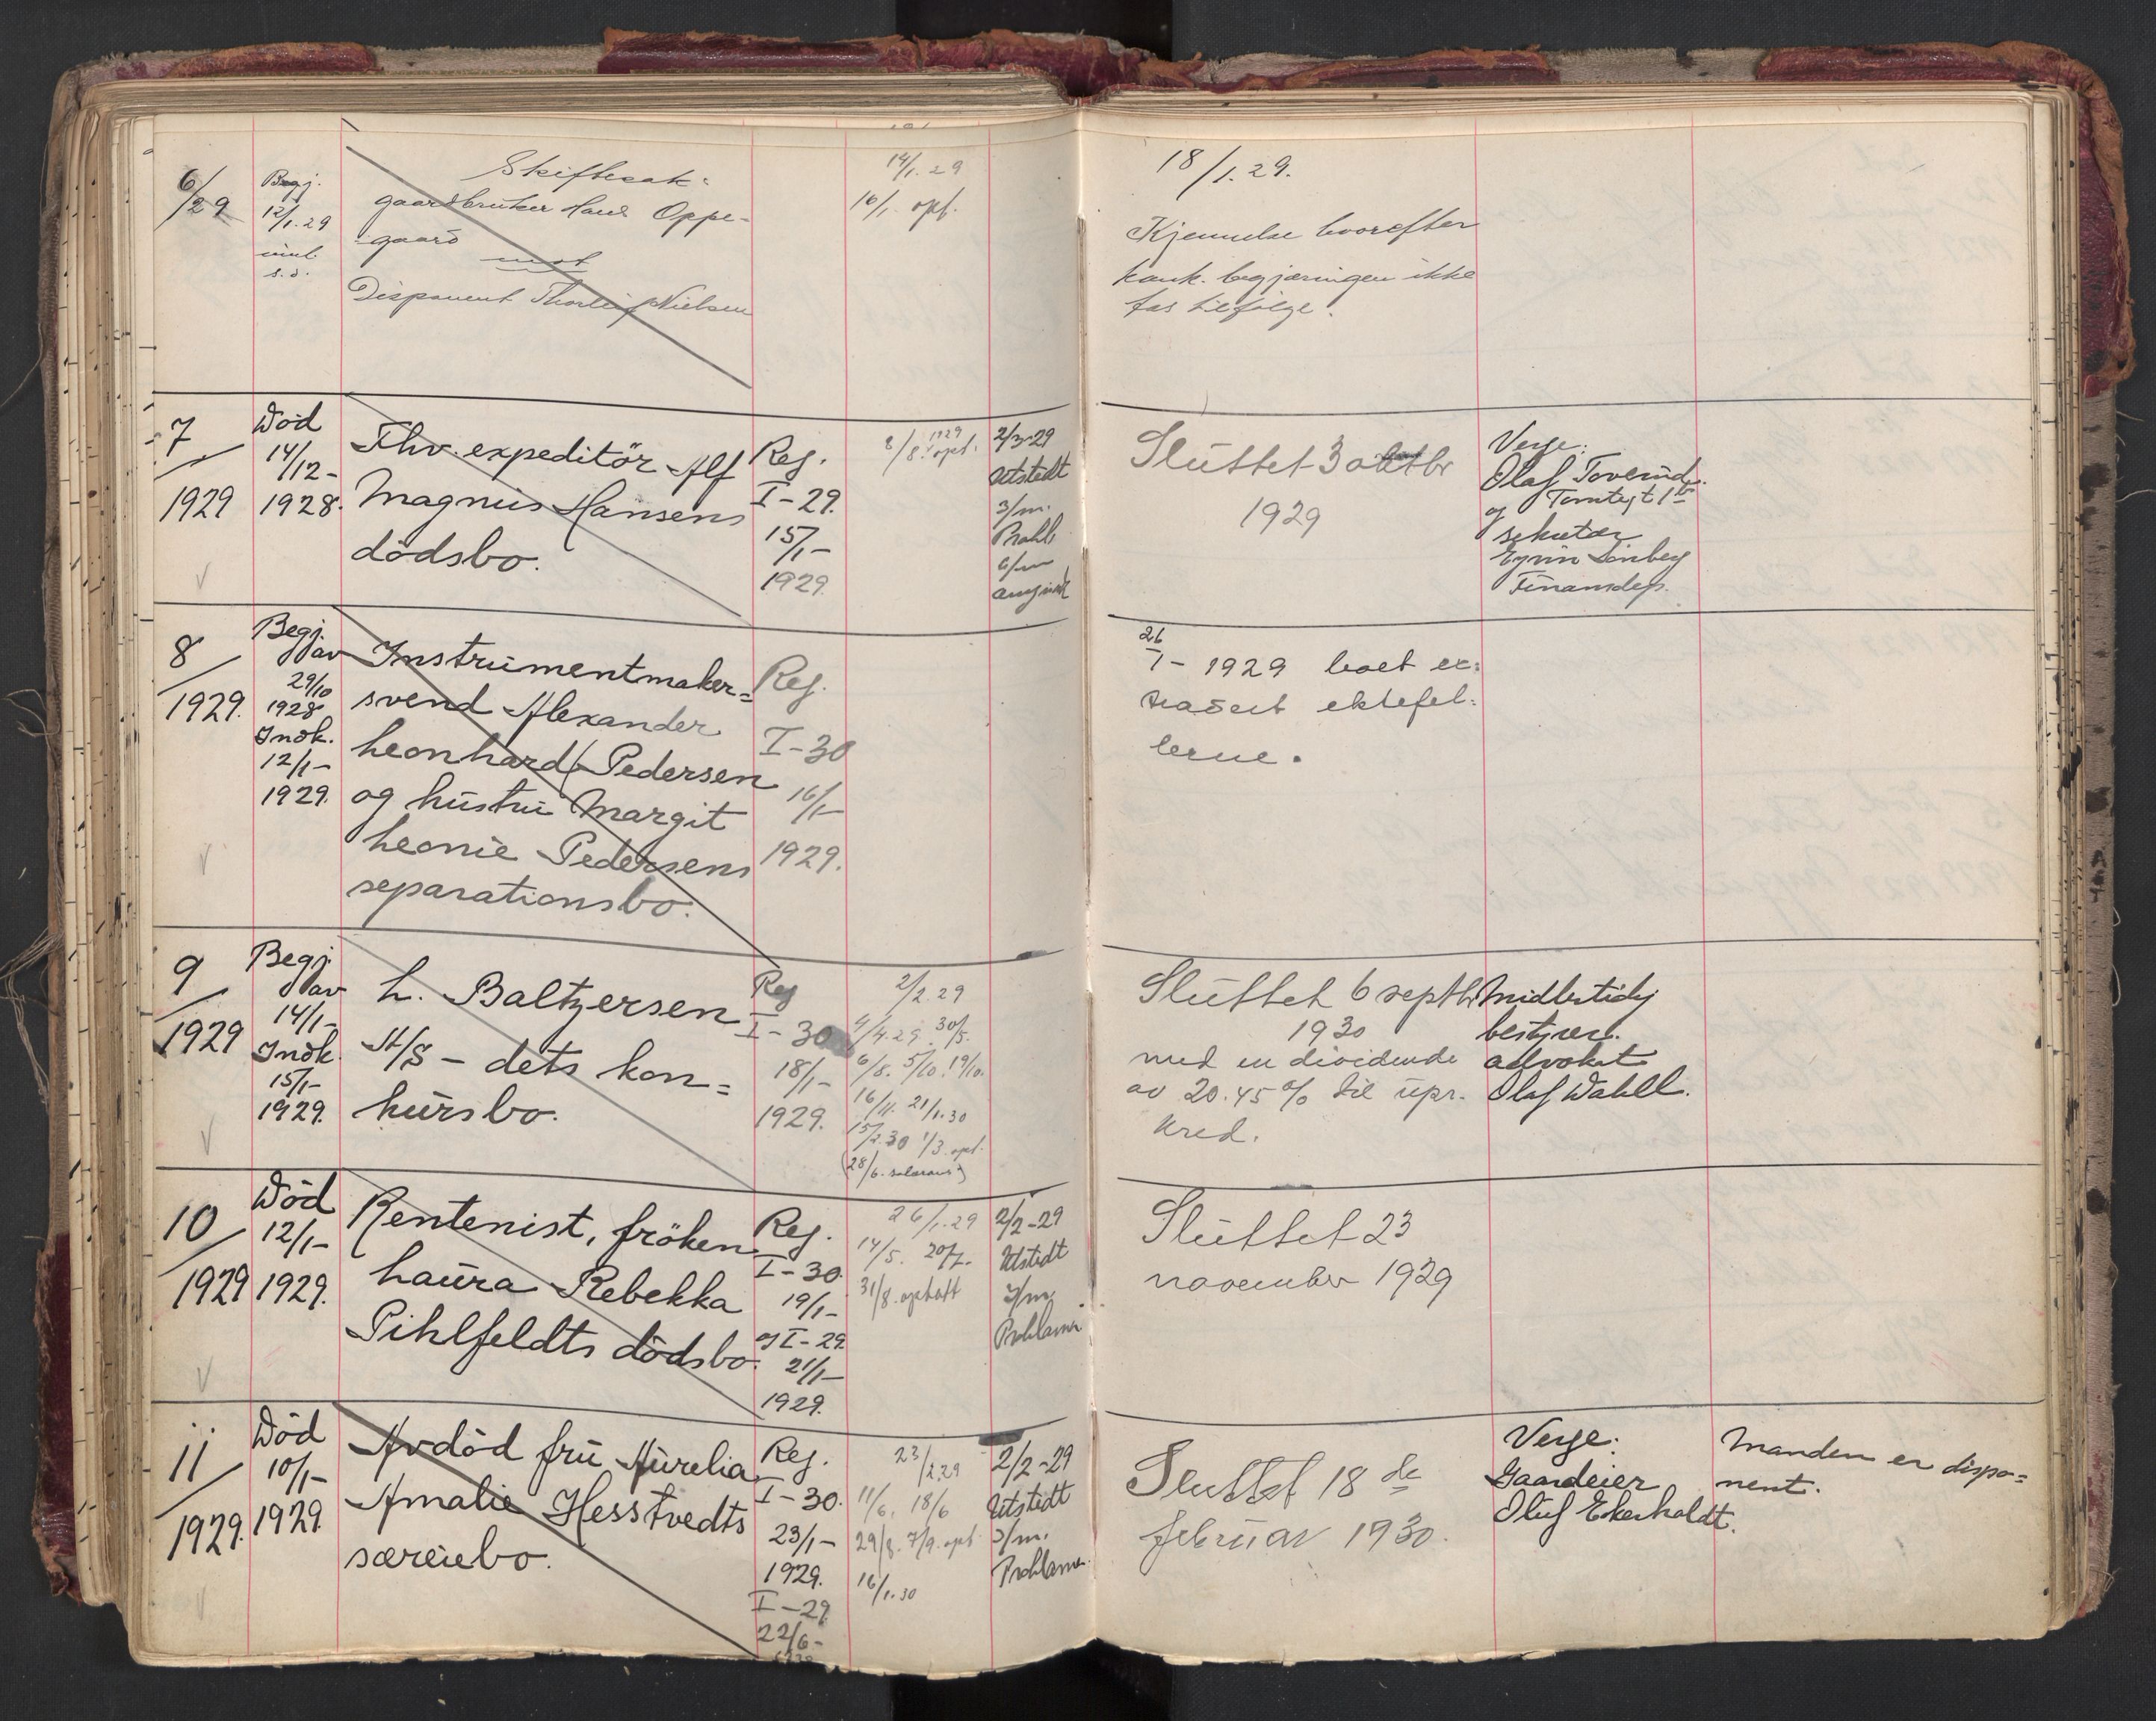 6/29
Begj.
12/1.29
innl.
s.d.
Skiftesak:
gaardbruker Hans Oppe-
gaard
mot
Disponent Thorleif Nielsen
14/1.29
16/1. opt.
18/1.29.
Kjennelse hvorefter
konk. begjæringen ikke
tas tilfølge.
7/1929
Död
14/12-
1928.
Fhv. expeditör Alf
Magnus Hansens
dödsbo.
Reg.
I-29.
15/1-
1929.
8/8 1929 opt.
2/3-29
Utstedt
3/m.
Prokl.
6/m
Sluttet 3 oktbr
1929
Verge:
Olaf Toverud,
Tomtegt 1b
og
sekretær
Finansdep.
8/1929.
Begj.
av
29/10
1928
Indk.
12/1-
1929.
Instrumentmaker=
svend Alexander
Leonhard Pedersen
og hustru Margit
Leonie Pedersens
separationsbo.
Reg.
I-30
16/1-
1929.
26/1- 1929 boet ex:
tradert ektefel:
lerne.
9/1929
Begj.
av
14/1-
Indk.
15/1-
1929.
L. Baltzersen
A/S - dets kon=
kursbo.
Reg
I-30
18/1-
1929.
2/2 29
4/4.29. 30/5.
6/8. 5/10. 19/10.
16/11. 21/1.30
15/2.30 1/3. opt.
(28/6. salærans)
Sluttet 6 septbr
1930
med en dividende
av 20.45% til upr.
kred.
Midlertidig
bestyrer.
advokat
Olaf Dahll.
10/1929
Död
12/1-
1929.
Rentenist, fröken
Laura Rebekka
Pihlfeldts dödsbo.
Reg.
I-30.
19/1-
og I-29.
21/1-
1929.
26/1.29
14/5. 20/7.
31/8. ophatt
2/2-29
Utstedt
3/m.
Proklama
Sluttet 23
november 1929
11/1929.
Död
10/1-
1929.
Avdöd fru Aurelia
Amalie Hesstvedts
særeiebo.
Reg.
I-30.
23/1-
1929.
I-29.
22/6-
23/2.29
11/6. 18/6
29/8. 7/9. opt
16/1.30
2/2-29
Utstedt
3/m.
Proklama.
Sluttet 18 de
februar 1930.
Verge:
Gaardeier
Oluf Ekerholdt.
Manden er dispo=
nent.